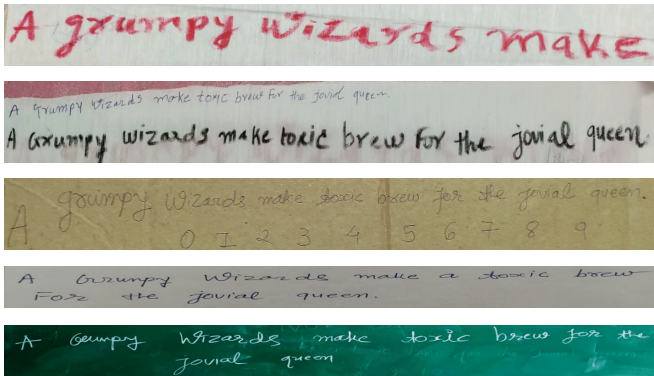 A grumpy wizards make
A grumpy wizards make toxic brew for the jovial queen.
A Grumpy wizards make toxic brew for the jovial queen
A grumpy wizards make toxic brew for the jovial queen.
0 1 2 3 4 5 6 7 8 9
A Grumpy Wizards make a toxic brew
For the jovial queen.
A Grumpy Wizards make toxic brew for the
jovial queen